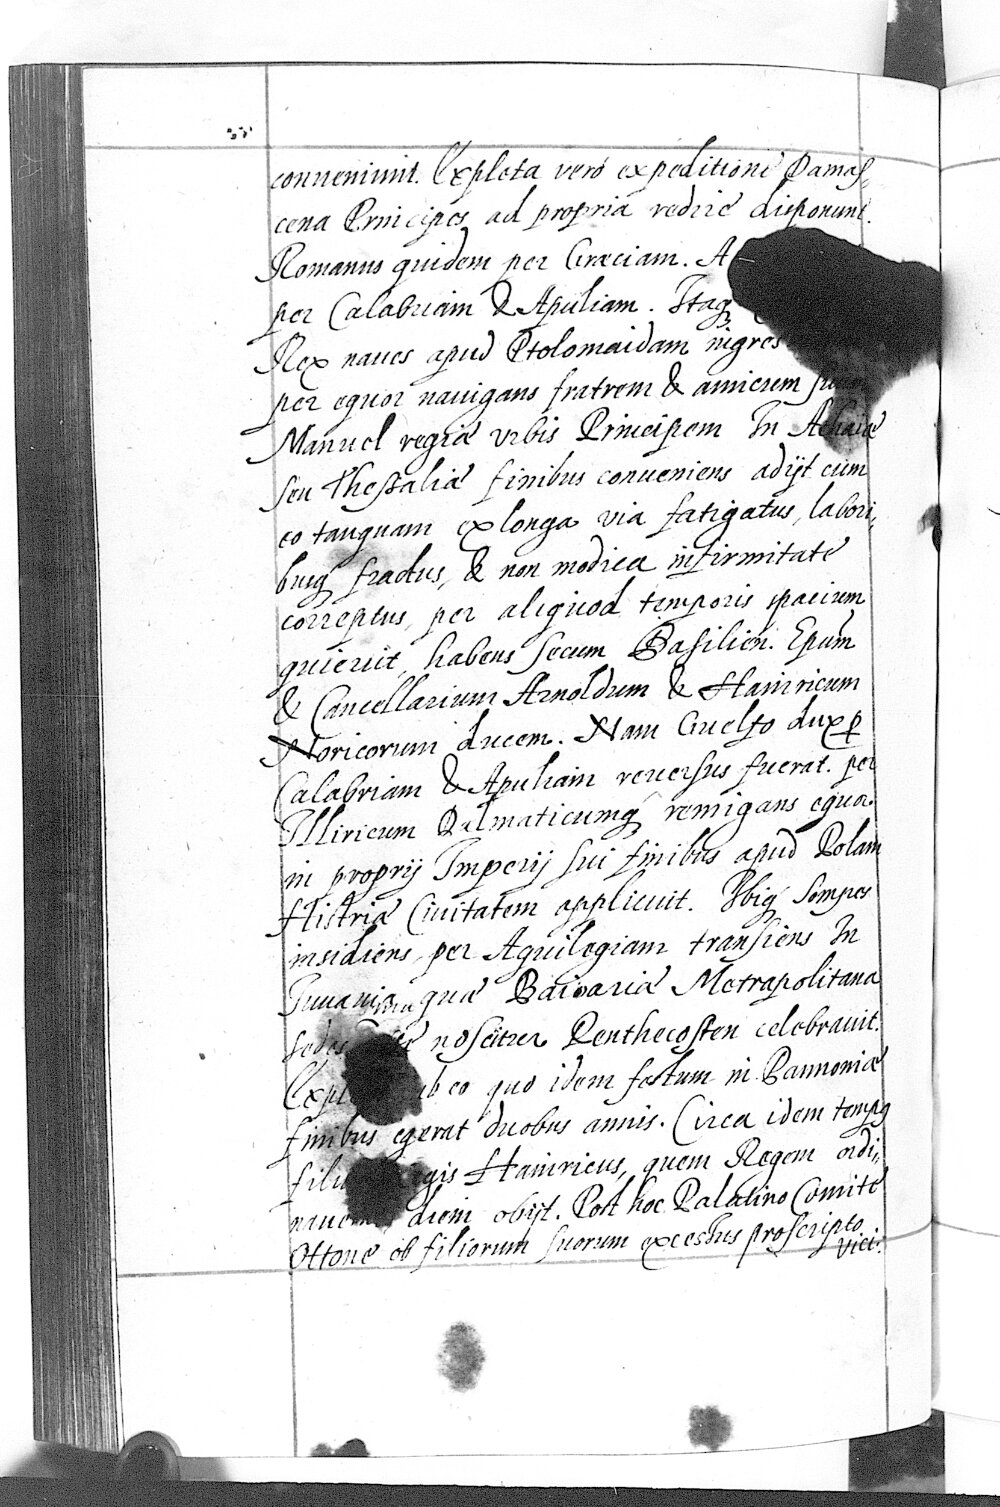 conueniunt. Expleta vero expeditione Damas,,
cena Principes ad propria redire disponunt.
Romanus quidem per Græciam. A
per Calabriam & Apuliam. Itaq
Rex naues apud Ptolomaidam ingres
per equor nauigans fratrem & amicum suum
Manuel regiæ vrbis Principem In Achaiæ
seu Thessaliæ finibus conueniens adijt cum
eo tanquam ex longa via fatigatus, labori,,
busq fractus, & non modica infirmitate
correptus, per aliquod temporis spacium
quieuit, habens secum Basilien. Epum
& Cancellarium Arnoldum & Hainricum
Noricorum ducem. Nam Guelfo dux p
Calabriam & Apuliam reuersus fuerat. per
Illiricum Dalmaticumq remigans equor
in proprij Imperij sui finibus apud Polam
Histriæ Ciuitatem applicuit. Ibiq Sompes
insidiens, per Aquilegiam transiens In
Iuuauia quæ Baioariæ Metrapolitana
sedes noscitur Penthecosten celebrauit.
Expl ab eo quo idem festum in Pannoniæ
finibus egerat duobus annis. Circa idem tempq
filiu Regis Hainricus, quem Regem ordi,,
nauerat diem obijt. Post hoc Palatino Comite
Ottone ob filiorum suorum excessus proscripto
vici: